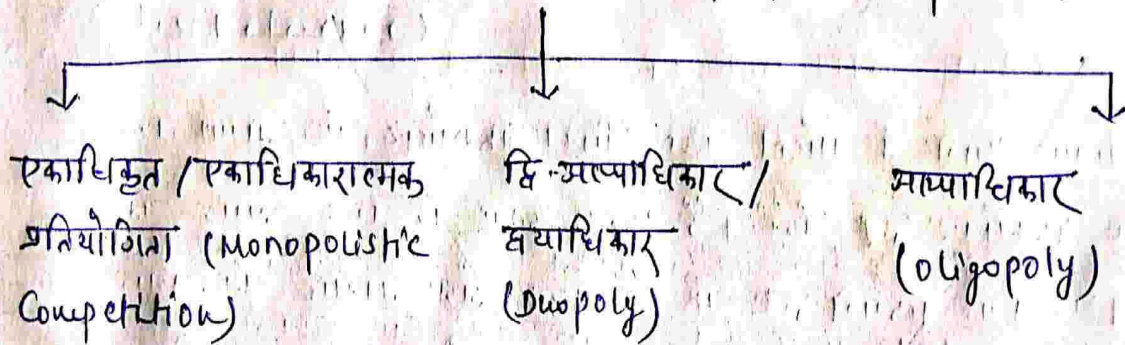 एकाधिकृत / एकाधिकारात्मक
प्रतियोगिता (Monopolistic
Competition)
द्वि-अल्पाधिकार /
द्वयाधिकार
(Duopoly)
अल्पाधिकार
(oligopoly)